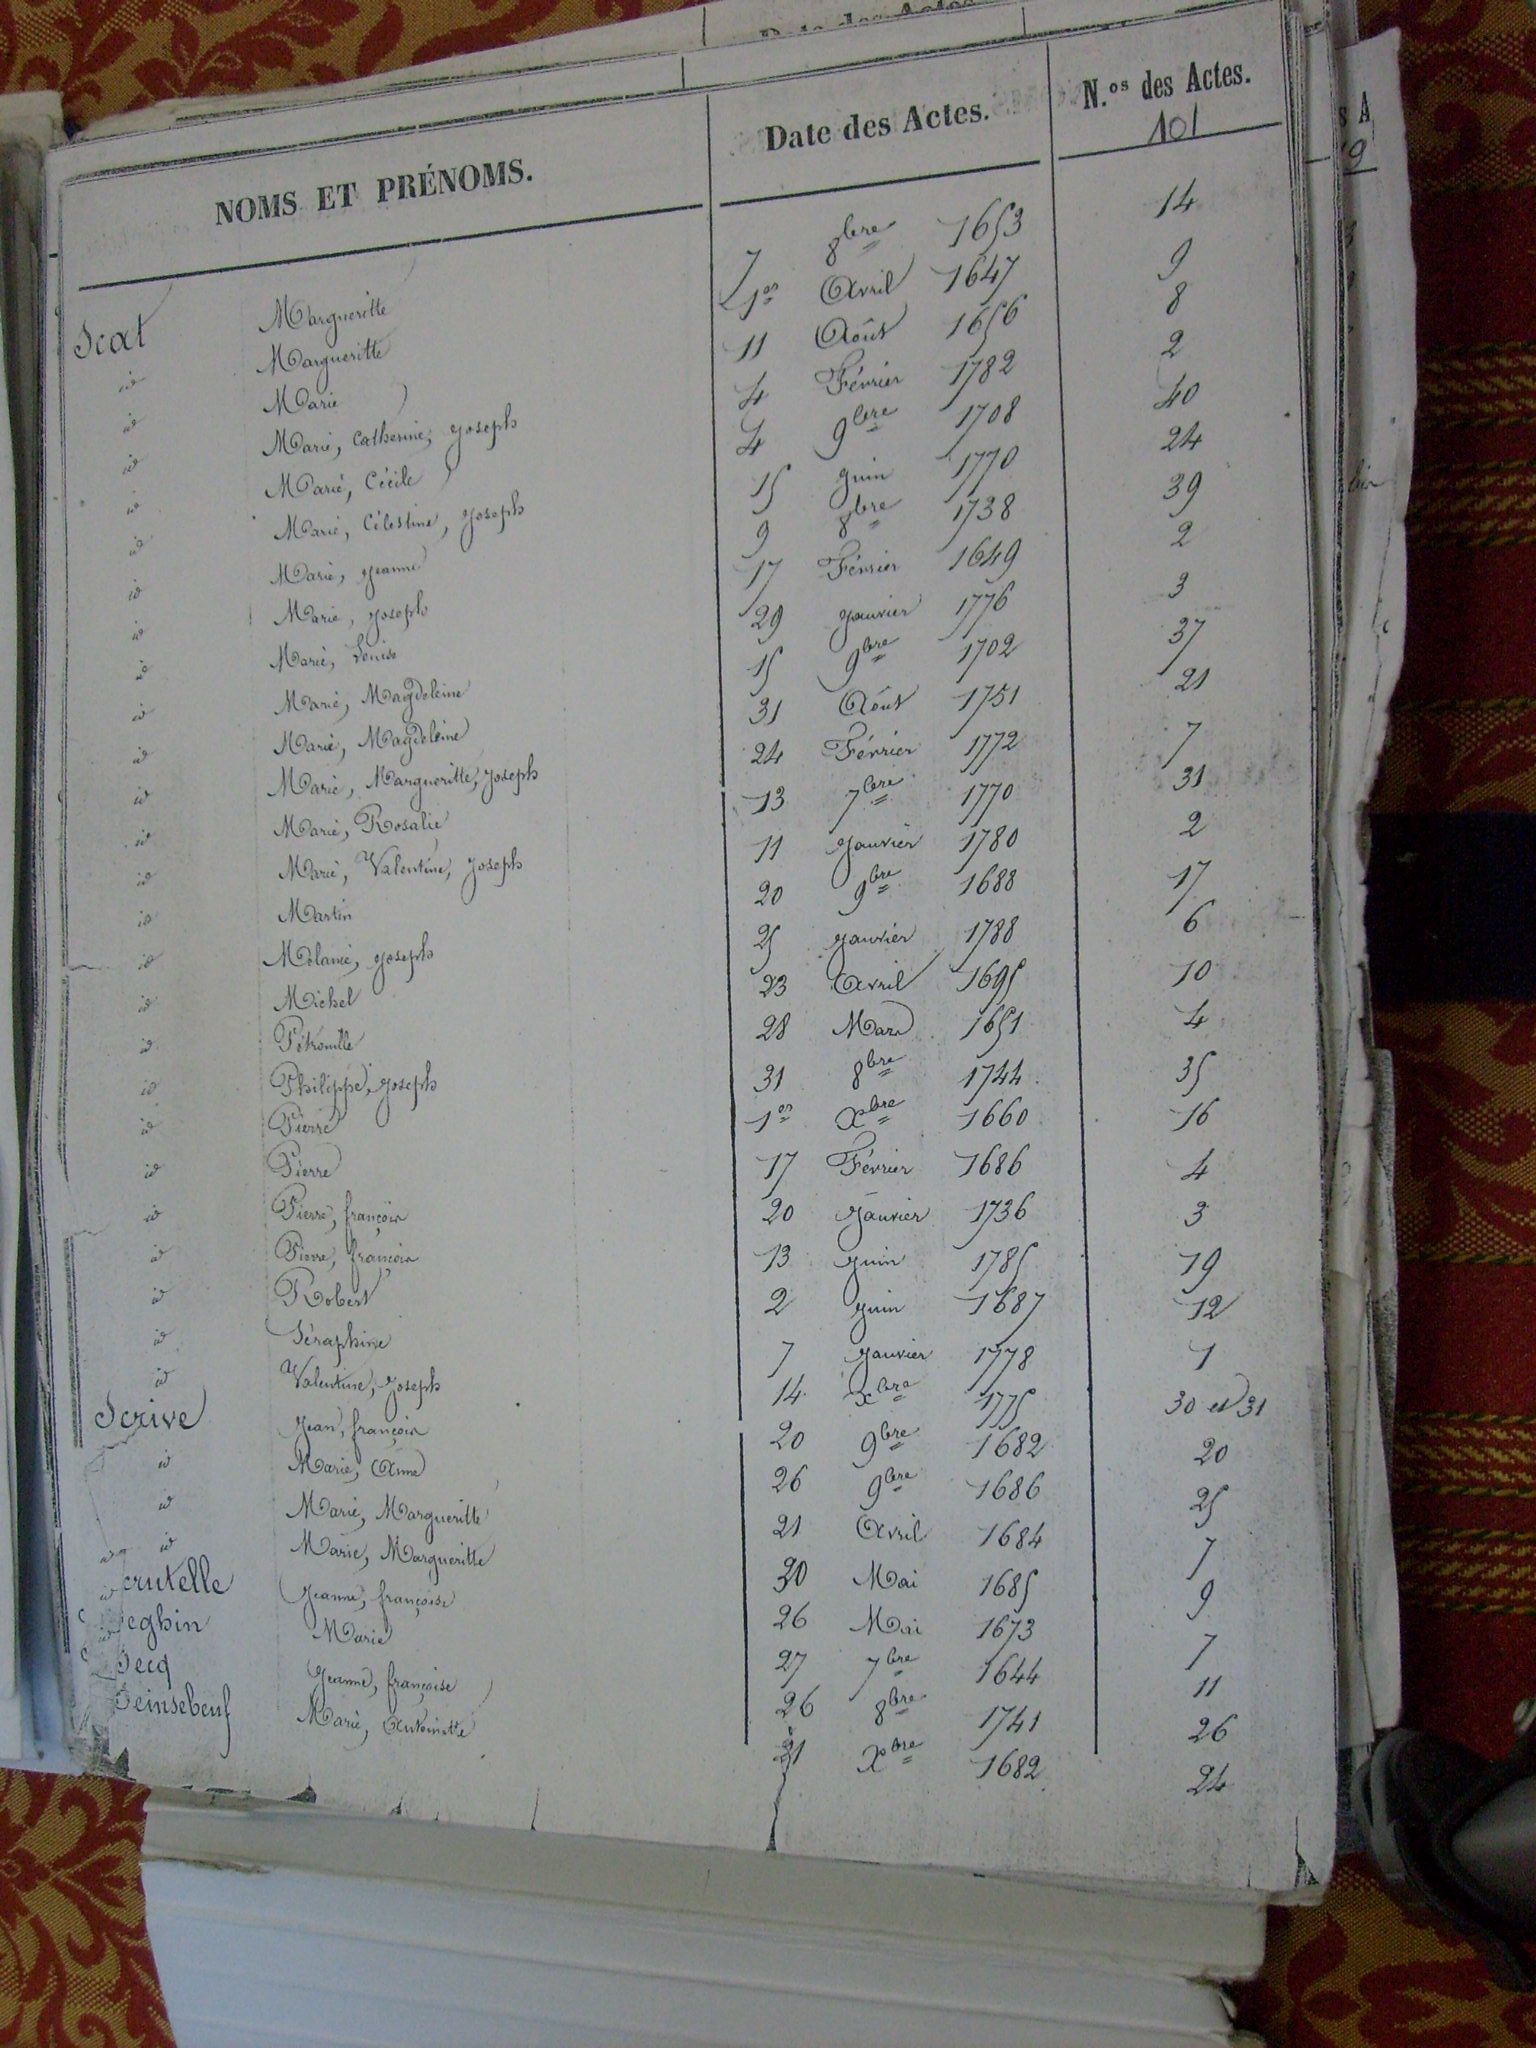 NOMS ET PRÉNOMS. Date des Actes. N.os des Actes.
101
Scat Margueritte 7 8bre 1653 14
id Margueritte 1er Avril 1647 9
id Marie 11 Août 1656 8
id Marie, Catherine, Joseph 4 Février 1782 2
id Marie, Cécile 4 9bre 1708 40
id Marie, Célestine, Joseph 15 Juin 1770 24
id Marie, Jeanne 9 8bre 1738 39
id Marie, Joseph 17 Février 1649 2
id Marie, Louise 29 Janvier 1776 3
id Marie, Magdeleine 15 9bre 1702 37
id Marie, Magdeleine 31 Août 1751 21
id Marie, Margueritte, Joseph 24 Février 1772 7
id Marie, Rosalie 13 7bre 1770 31
id Marie, Valentine, Joseph 11 Janvier 1780 2
id Martin 20 9bre 1688 17
id Mélanie, Joseph 25 Janvier 1788 6
id Michel 23 Avril 1695 10
id Pétronille 28 Mars 1651 4
id Philippe, Joseph 31 8bre 1744 35
id Pierre 1er Xbre 1660 16
id Pierre 17 Février 1686 4
id Pierre, françois 20 Janvier 1736 3
id Pierre, françois 13 Juin 1785 19
id Robert 2 Juin 1687 12
id Séraphine 7 Janvier 1778 1
id Valentine, Joseph 14 Xbre 1775 30 et 31
Scrive Jean, françois 20 9bre 1682 20
id Marie, Anne 26 9bre 1686 25
id Marie, Margueritte 21 Avril 1684 7
id Marie, Margueritte 30 Mai 1685 9
crutelle Jeanne, françoise 26 Mai 1673 7
eghin Marie 27 7bre 1644 11
Secq Jeanne, françoise 26 8bre 1741 26
Seinsebeuf Marie, Antoinette 21 Xbre 1682 24